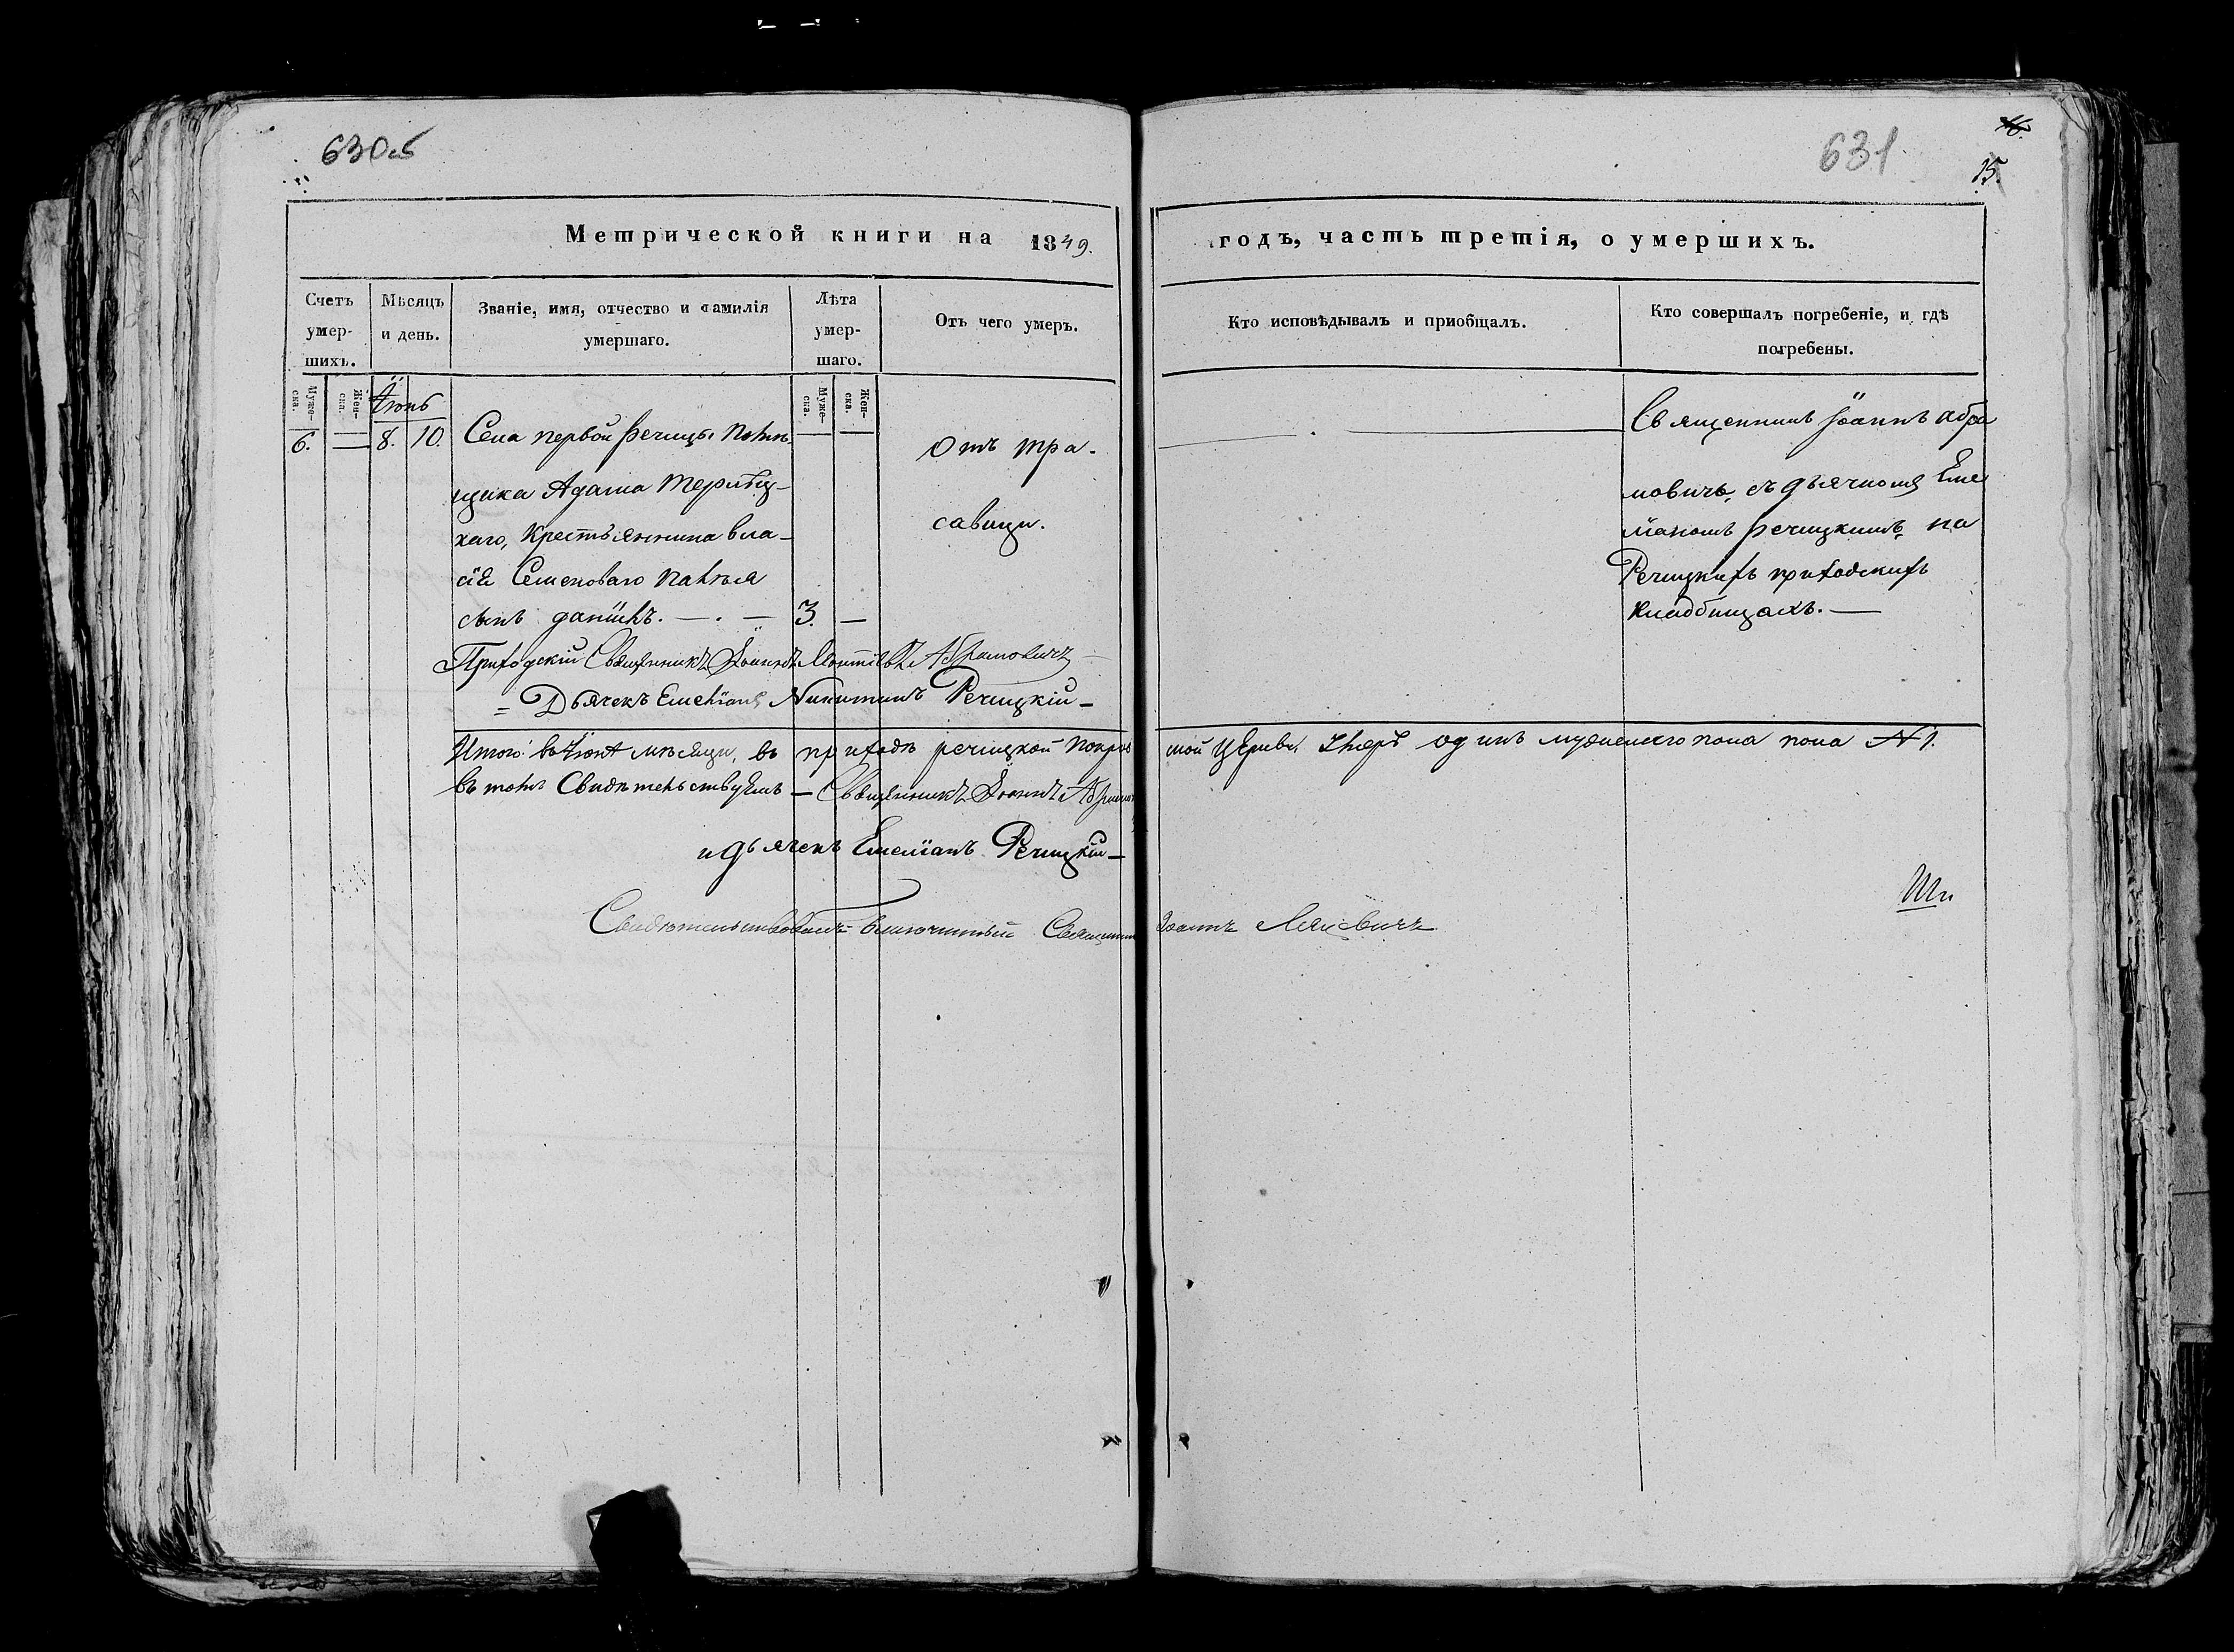 630об
631
16.
15.
Метрической книги на 1849.
годъ, часть третія, о умершихъ.
Счетъ умер-шихъ.
Мѣсяцъ и день.
Званіе, имя, отчество и фамилія умершаго.
Лѣта умер-шаго.
Отъ чего умеръ.
Кто исповѣдывалъ и приобщалъ.
Кто совершалъ погребеніе, и гдѣ погребены.
Муже-ска.
Жен-ска.
Муже-ска.
Жен-ска.
Іюнь
6. — 8. 10.
Села первой Речицы помѣ
щика Адама
каго, крестьянина Вла
сія Семенова
сынъ Даніилъ. — . — 3. —
отъ тра-
савицы.
Священникъ Іоаннъ Абра
мовичъ, съ дьячкомъ Еме
ліаномъ Речицкимъ, на
Речицкихъ приходскихъ
кладбищахъ. —
Приходскій Священникъ Іоаннъ Абрамовичъ
= Дьячекъ Емеліанъ Никитинъ Речицкій —
Итого: въ Іюнѣ мѣсяцѣ, въ приходѣ речицкой покров
ской Церкви, умеръ одинъ мужескаго пола пола № 1.
въ томъ Свидѣтельствуемъ — Священникъ Іоаннъ Абрамов
и дьячекъ Емеліанъ Речицкій —
Свидѣтельствовалъ Благочинный Священник Іоаннъ